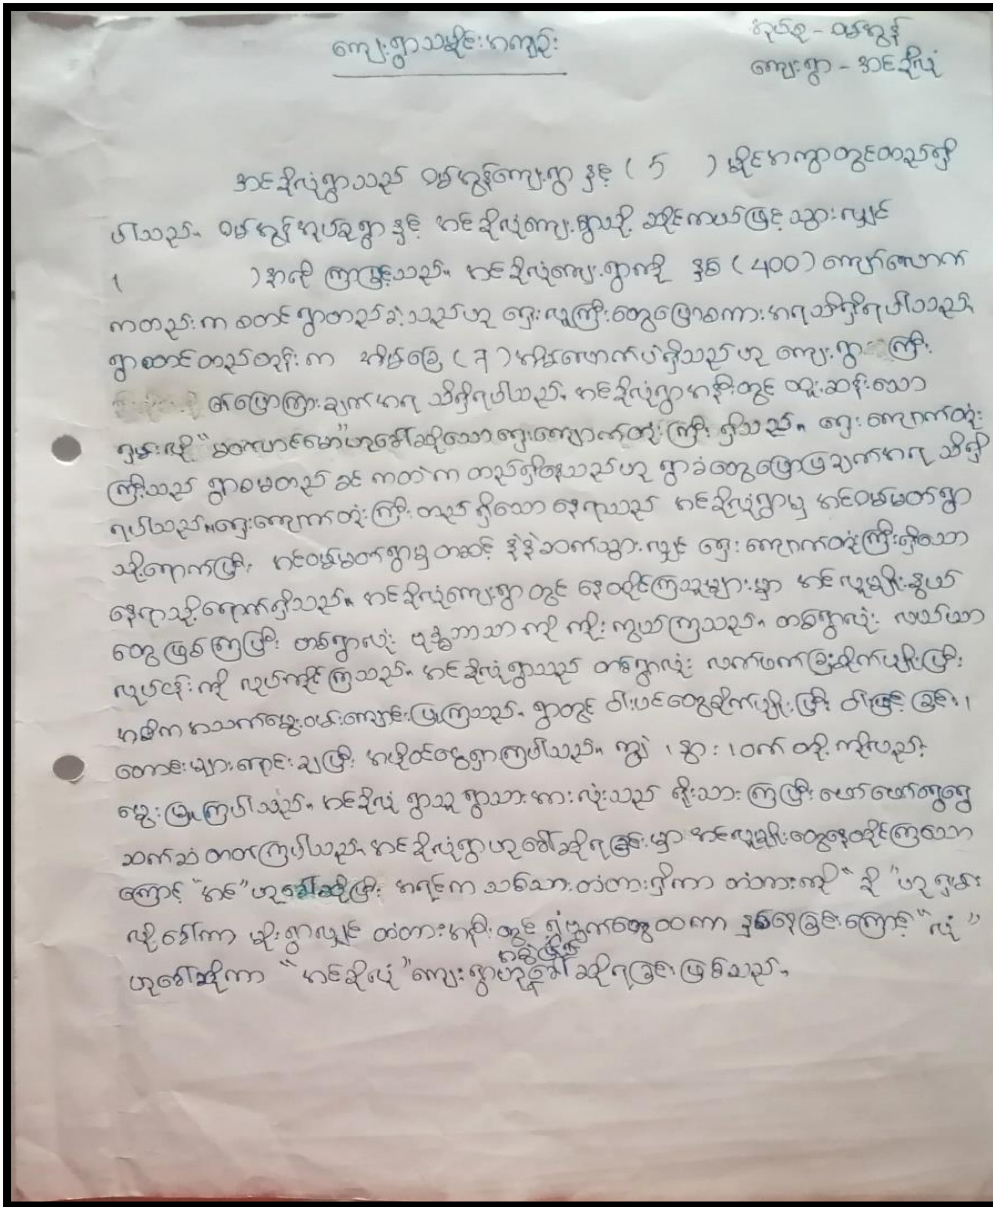 ကျေးရွာသမိုင်းအကျဉ်း
အုပ်စု - ဝမ်ဟွန်
ကျေးရွာ - အင်ခိုလုံ
အင်ခိုလုံရွာသည် ဝမ်ဟွန်ကျေးရွာ နှင့် ( 5 ) မိုင်အကွာတွင်တည်ရှိ
ပါသည်။ ဝမ်ဟွန်အုပ်စုရွာ နှင့် အင်ခိုလုံကျေးရွာသို့ ဆိုင်ကယ်ဖြင့် သွားလျှင်
( ) နာရီ ကြာမြင့်သည်။ အင်ခိုလုံကျေးရွာကို နှစ် (400) ကျော်လောက်
ကတည်းက စတင်ရွာတည်ခဲ့သည်ဟု ရှေးလူကြီးတွေပြောစကားအရသိရှိရပါသည်။
ရွာစတင်တည်တုန်းက အိမ်ခြေ (၇) အိမ်လောက်ပဲရှိသည်ဟု ကျေးရွာ ကြီး
ပြောကြားချက်အရ သိရှိရပါသည်။ အင်ခိုလုံရွာအနီးတွင် ထူးဆန်းသော
ရှမ်းလို ဟုခေါ်ဆိုသောရှေးကျောက်တုံးကြီး ရှိသည်။ ရှေးကျောက်တုံး
ကြီးသည် ရွာစမတည်ခင် ကတဲက တည်ရှိနေသည်ဟု ရွာခံတွေပြောပြချက်အရ သိရှိ
ရပါသည်။ ရှေးကျောက်တုံးကြီး တည်ရှိသော နေရာသည် အင်ခိုလုံရွာမှ အင်ဝမ်မတ်ရွာ
သို့ရောက်ပြီး အင်ဝမ်မတ်ရွာမှတဆင့် နဲနဲဆက်သွားလျှင် ရှေးကျောက်တုံးကြီးရှိသော
နေရာသို့ရောက်ရှိသည်။ အင်ခိုလုံကျေးရွာတွင် နေထိုင်ကြသူများမှာ အင်လူမျိုးနွယ်
တွေဖြစ်ကြပြီး တစ်ရွာလုံး ဗုဒ္ဓဘာသာကို ကိုးကွယ်ကြသည်။ တစ်ရွာလုံး လယ်ယာ
လုပ်ငန်းကို လုပ်ကိုင်ကြသည်။ အင်ခိုလုံရွာသည် တစ်ရွာလုံး လက်ဖက်ခြံစိုက်ပျိုးပြီး
အဓိကအသက်မွေးဝမ်းကျောင်းပြုကြသည်။ ရွာတွင် ဝါးပင်တွေစိုက်ပျိုးပြီး ဝါးဖြင့် ခြင်း၊
တောင်းများရောင်းချပြီး အပိုဝင်ငွေရှာကြပါသည်။ ကျွဲ ၊ နွား ၊ ဝက် တို့ ကိုလည်း
မွေးမြူကြပါသည်။ အင်ခိုလုံ ရွာသူ ရွာသားအားလုံးသည် ရိုးသားကြပြီး ဖော်ဖော်ရွေရွေ
ဆက်ဆံတတ်ကြပါသည်။ အင်ခိုလုံရွာဟု ခေါ်ဆိုရခြင်းမှာ အင်လူမျိုးတွေနေထိုင်ကြသော
ကြောင့် "အင်" ဟုခေါ်ဆိုပြီး အရင်က သစ်သားတံတားရှိကာ တံတားကို "ခို" ဟု ရှမ်း
လိုခေါ်ကာ မိုးရွာလျှင် တံတားအနီးတွင် ရွှံ့ဗွက်တွေထကာ နှစ်နေခြင်းကြောင့် "လုံ"
ဟုခေါ်ဆိုကာ "အင်ခိုလုံ" ကျေးရွာဟုခေါ်ဆိုရခြင်းဖြစ်သည်။